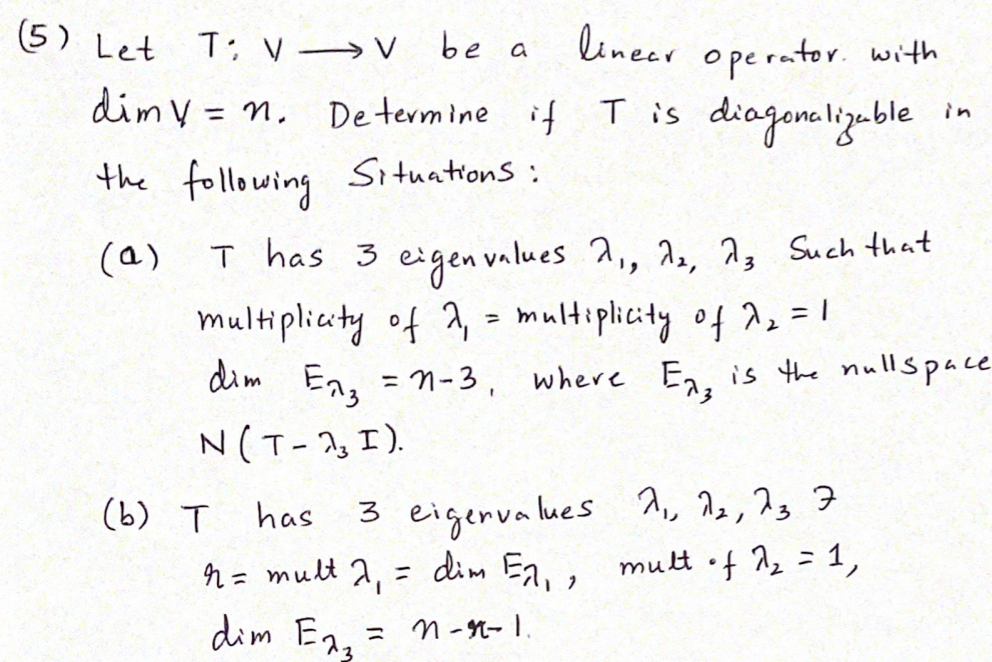 (5) Let T: V ⟶ V be a linear operator. with
dim V = n. Determine if T is diagonalizable in
the following Situations:
(a) T has 3 eigenvalues λ₁, λ₂, λ₃ Such that
multiplicity of λ₁ = multiplicity of λ₂ = 1
dim E_λ₃ = n-3, where E_λ₃ is the nullspace
N(T-λ₃ I).
(b) T has 3 eigenvalues λ₁, λ₂, λ₃ ∋
r = mult λ₁ = dim E_λ₁, mult of λ₂ = 1,
dim E_λ₃ = n-r-1.